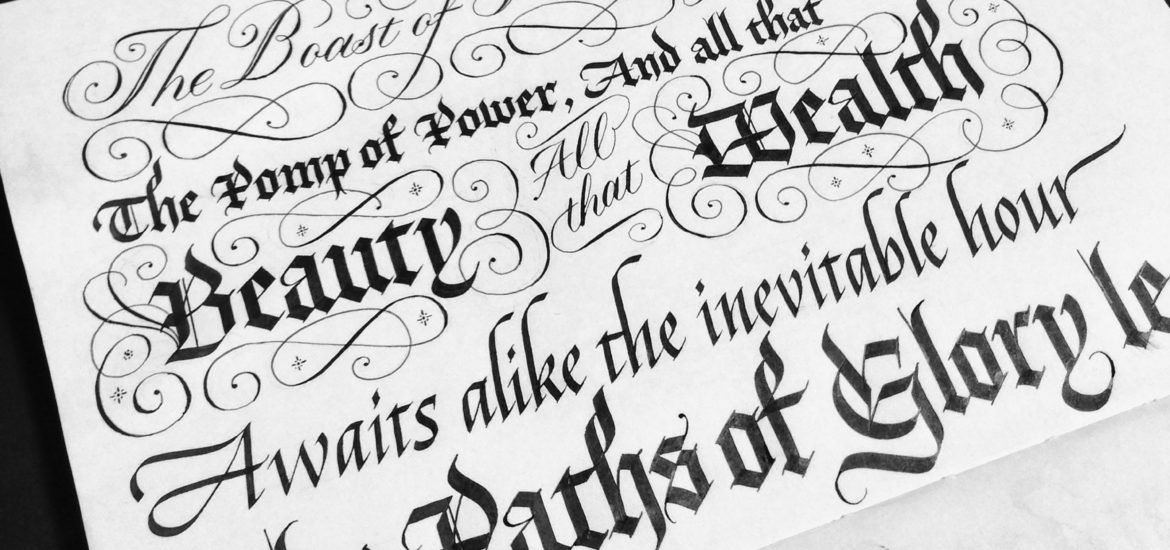 The Boast of
The Pomp of Power, And all that
Beauty All that Wealth
Awaits alike the inevitable hour
Paths of Glory le